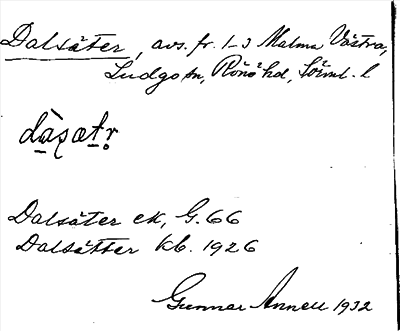 Dalsäter, avs. fr. 1-3 Malma Västra,
Ludgo sn, Rönö hd, Sörml. l
dàsætr
Dalsäter ek, G. 66
Dalsätter kb. 1926
Gunnar Annell 1932